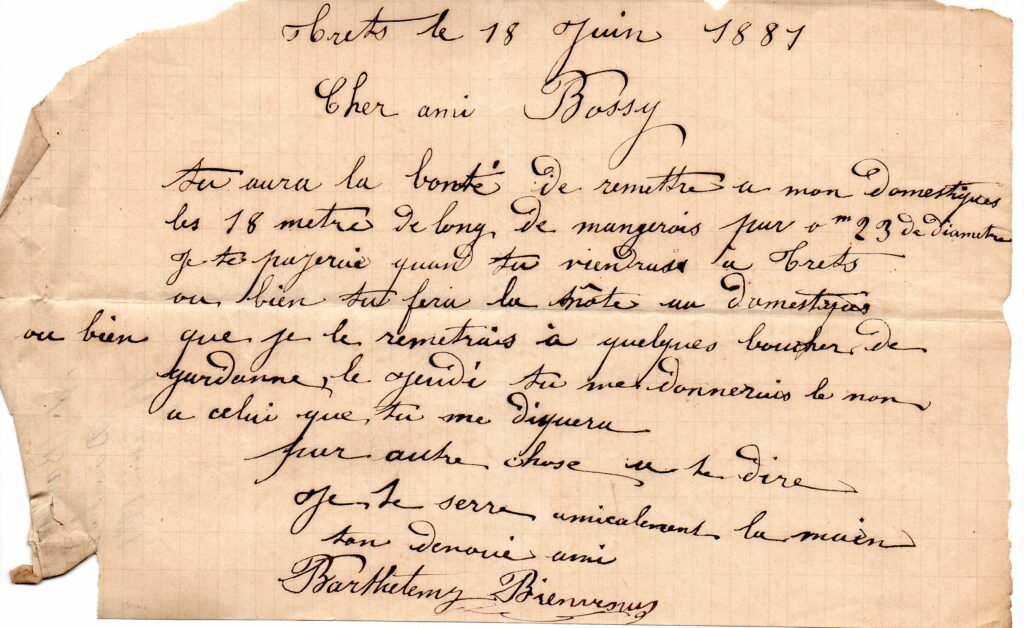 Trets le 18 Juin 1881
Cher ami Bossy
tu aura la bonté de remettre a mon domestiques
les 18 metre de long, de mangerois par 0 m 23 de diametre
Je te payerai quan tu viendras à Trets
ou bien tu fera la nôte au domestiques
ou bien que je le remetrais à quelques boucher de
gardanne, le Jeudi tu me donnerais le non
a celui que tu me diquera
pur autre chose a te dire
Je te serre amicalement la main
ton devoué ami
Barthelemy Bienvenus